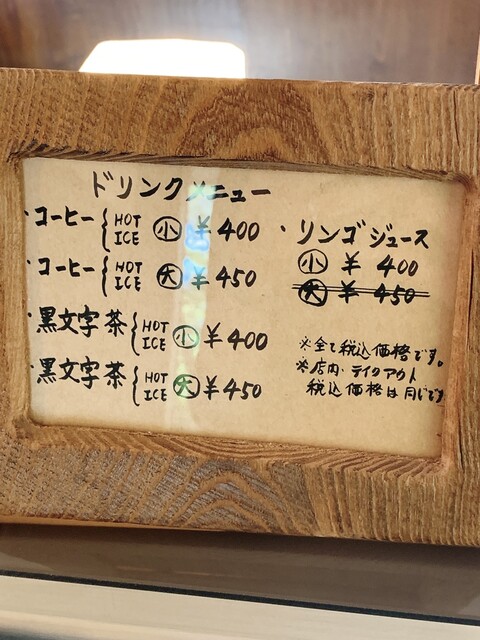 ドリンクメニュー
・コーヒー { HOT ICE ㊙小 ¥400
・コーヒー { HOT ICE 大 ¥450
・黒文字茶 { HOT ICE 小 ¥400
・黒文字茶 { HOT ICE 大 ¥450
・リンゴジュース
小 ¥400
大 ¥450
※全て税込価格です。
※店内・テイクアウト
税込価格は同じです